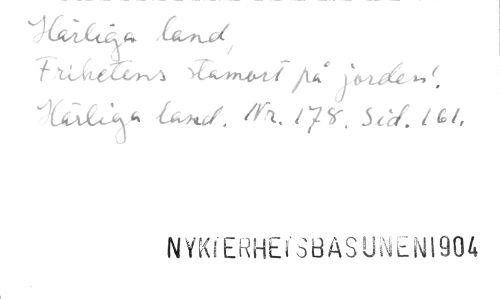 Härliga land,
Frihetens stamort på jorden!
Härliga land. Nr. 178. Sid. 161.
NYKTERHETSBASUNEN 1904